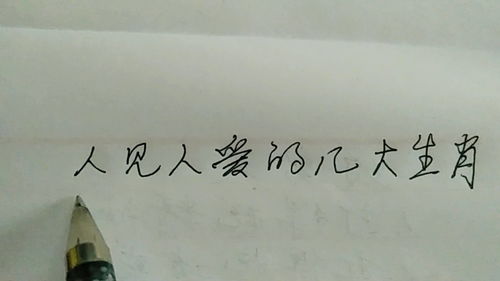 人见人爱的几大生肖